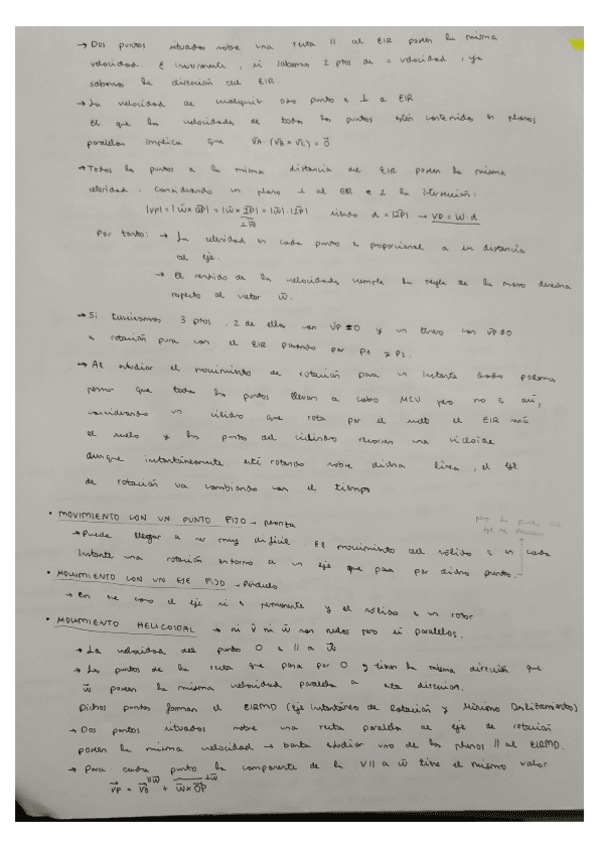 → Dos puntos situados sobre una recta // al EIR poseen la misma
velocidad. E inversamente, si sabemos 2 ptos de = velocidad, ya
sabemos la dirección del EIR
→ La velocidad de cualquier otro punto es ⊥ a EIR
El que las velocidades de todos los puntos estén contenidas en planos
paralelos implica que v̄A (v̄B × v̄C) = 0̄
→ Todos los puntos a la misma distancia del EIR poseen la misma
celeridad. Considerando un plano ⊥ al EIR e I la intersección:
|vp| = |w̄ × QP| = |w̄ × IP| = |w̄| · |IP| siendo d = |IP| → vp = w · d
⊥ w̄
Por tanto: → La celeridad en cada punto es proporcional a su distancia
al eje.
→ El sentido de las velocidades cumple la regla de la mano derecha
respecto al vector w̄.
→ Si tuviéramos 3 ptos, 2 de ellos con v̄p = 0 y un tercero con v̄p ≠ 0
es rotación pura con el EIR pasando por P1 y P2.
→ Al estudiar el movimiento de rotación para un instante dado podemos
pensar que todos los puntos llevan a cabo MCU pero no es así,
considerando un cilindro que rota por el suelo el EIR será
el suelo y los puntos del cilindro recorren una cicloide
Aunque instantáneamente esté rotando sobre dicha línea, el eje
de rotación va cambiando con el tiempo
• MOVIMIENTO CON UN PUNTO FIJO → peonza
→ Puede llegar a ser muy difícil. El movimiento del sólido es en cada
instante una rotación entorno a un eje que pasa por dicho punto.
• MOVIMIENTO CON UN EJE FIJO → Péndulo
→ En ese caso el eje sí es permanente y el sólido es un rotor
• MOVIMIENTO HELICOIDAL → ni v̄ ni w̄ son nulos pero sí paralelos.
→ La velocidad del punto O es // a w̄
→ Los puntos de la recta que pasa por O y tienen la misma dirección que
w̄ poseen la misma velocidad paralela a esta dirección.
Dichos puntos forman el EIRMD (Eje Instantáneo de Rotación y Mínimo Deslizamiento)
→ Dos puntos situados sobre una recta paralela al eje de rotación
poseen la misma velocidad → basta estudiar uno de los planos // al EIRMD.
→ Para cada punto la componente de la v // a w̄ tiene el mismo valor
//w̄ ⊥w̄
v̄p = v̄0 + w̄ × OP